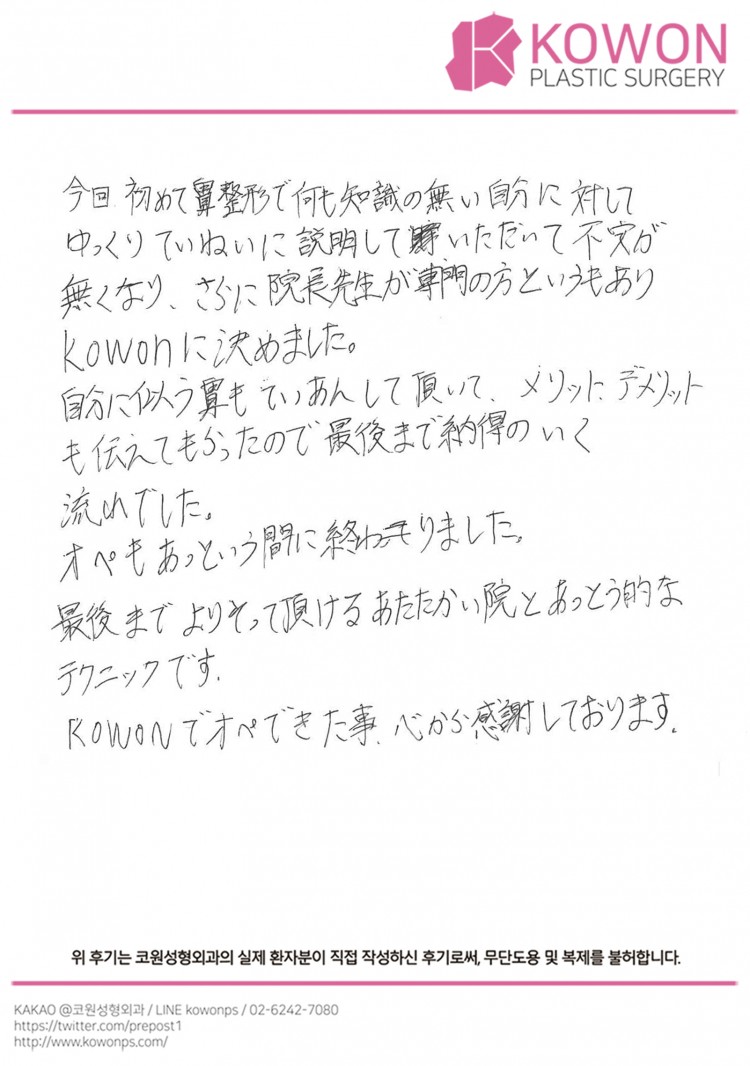 KOWON
PLASTIC SURGERY
今回 初めて鼻整形で何も知識の無い自分に対して
ゆっくりていねいに説明して いただいて 不安が
無くなり、さらに院長先生が専門の方というもあり
Kowonに決めました。
自分に似う鼻もていあんして頂いて、メリット デメリット
も伝えてもらったので最後まで納得のいく
流れでした。
オペもあっという間に終わりました。
最後まで よりそって頂ける あたたかい院と あっとう的な
テクニックです.
KOWONでオペできた事、心から感謝しております.
위 후기는 코원성형외과의 실제 환자분이 직접 작성하신 후기로써, 무단도용 및 복제를 불허합니다.
KAKAO @코원성형외과 / LINE kowonps / 02-6242-7080
https://twitter.com/prepost1
http://www.kowonps.com/